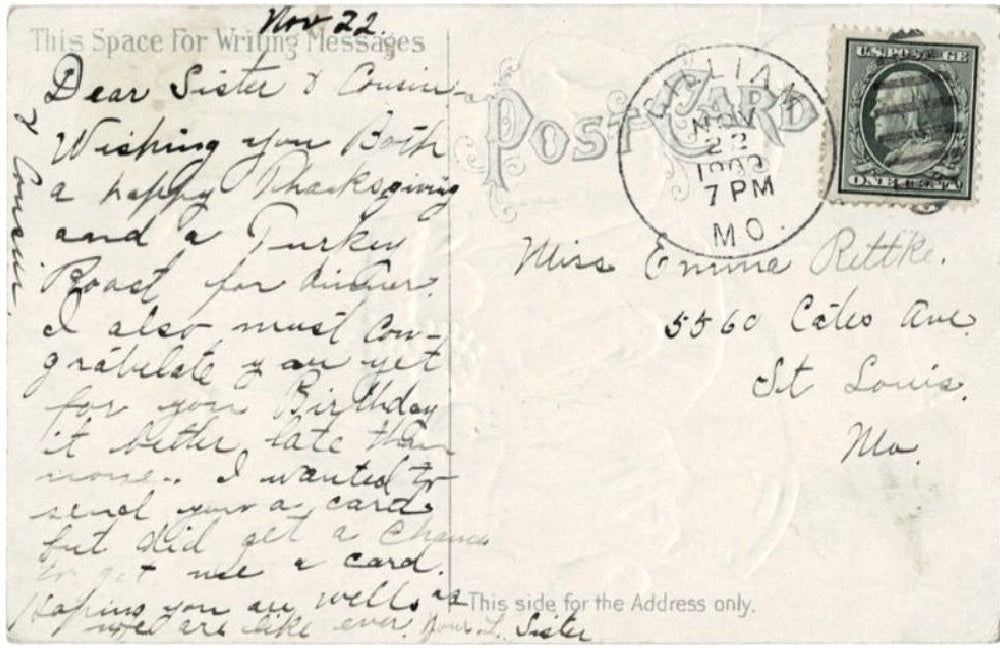 Nov 22.
This Space For Writing Messages
Dear Sister & Cousin
Wishing you Both
a happy Thanksgiving
and a Turkey
Roast for dinner.
I also must Con-
gratulate you yet
for you Birthday
it better late than
none.. I wanted to
send you a card
but did get a Chance
to get me a card.
Hoping you are well as
we are like ever. Your L. Sister
& Cousin
POST CARD
NOV
22
7 PM
MO.
U.S. POSTAGE
ONE CENT
Miss Emma Rettke.
5560 Cates Ave.
St Louis.
Mo.
This side for the Address only.